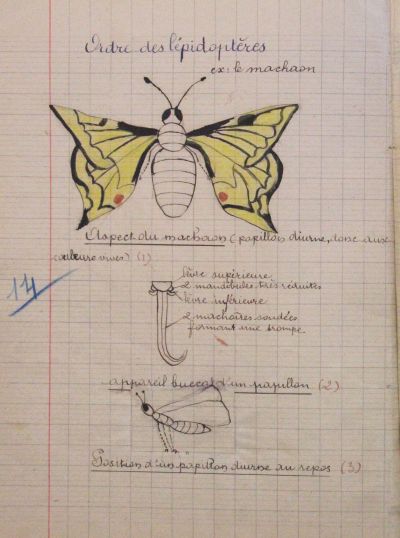 Ordre des lépidoptères
ex: le machaon
Aspect du machaon (papillon diurne, donc aux
couleurs vives) (1)
lèvre supérieure
2 mandibules très réduites
lèvre inférieure
2 machoires soudées
formant une trompe
14
appareil buccal d'un papillon (2)
Position d'un papillon diurne au repos (3)